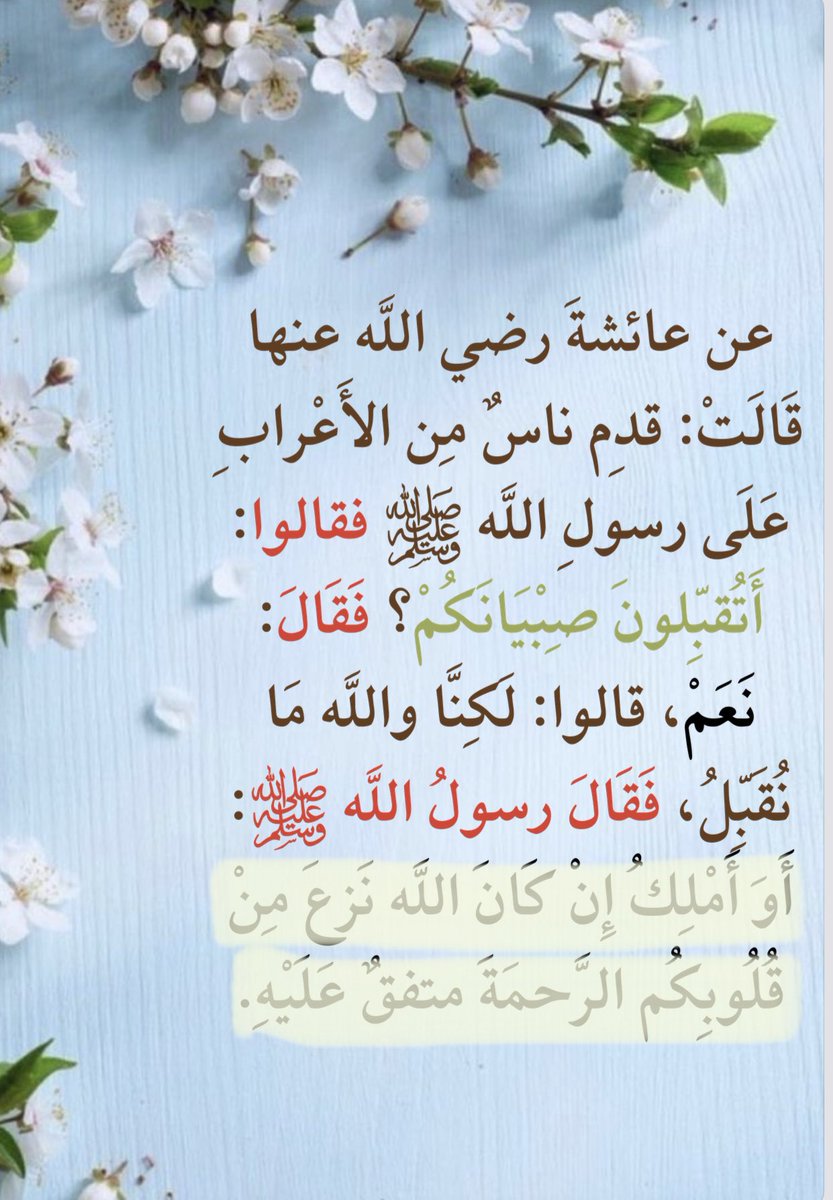 عن عائشةَ رضي اللَّه عنها
قَالَتْ: قدمِ ناسٌ مِن الأَعْرابِ
عَلَى رسولِ اللَّه ﷺ فقالوا:
أَتُقبِّلونَ صِبْيَانَكُمْ؟ فَقَالَ:
نَعَمْ، قالوا: لَكِنَّا واللَّه مَا
نُقَبِّلُ، فَقَالَ رسولُ اللَّه ﷺ:
أَوَ أَمْلِكُ إِنْ كَانَ اللَّه نَزعَ مِنْ
قُلُوبِكُم الرَّحمَةَ متفقٌ عَلَيْهِ.